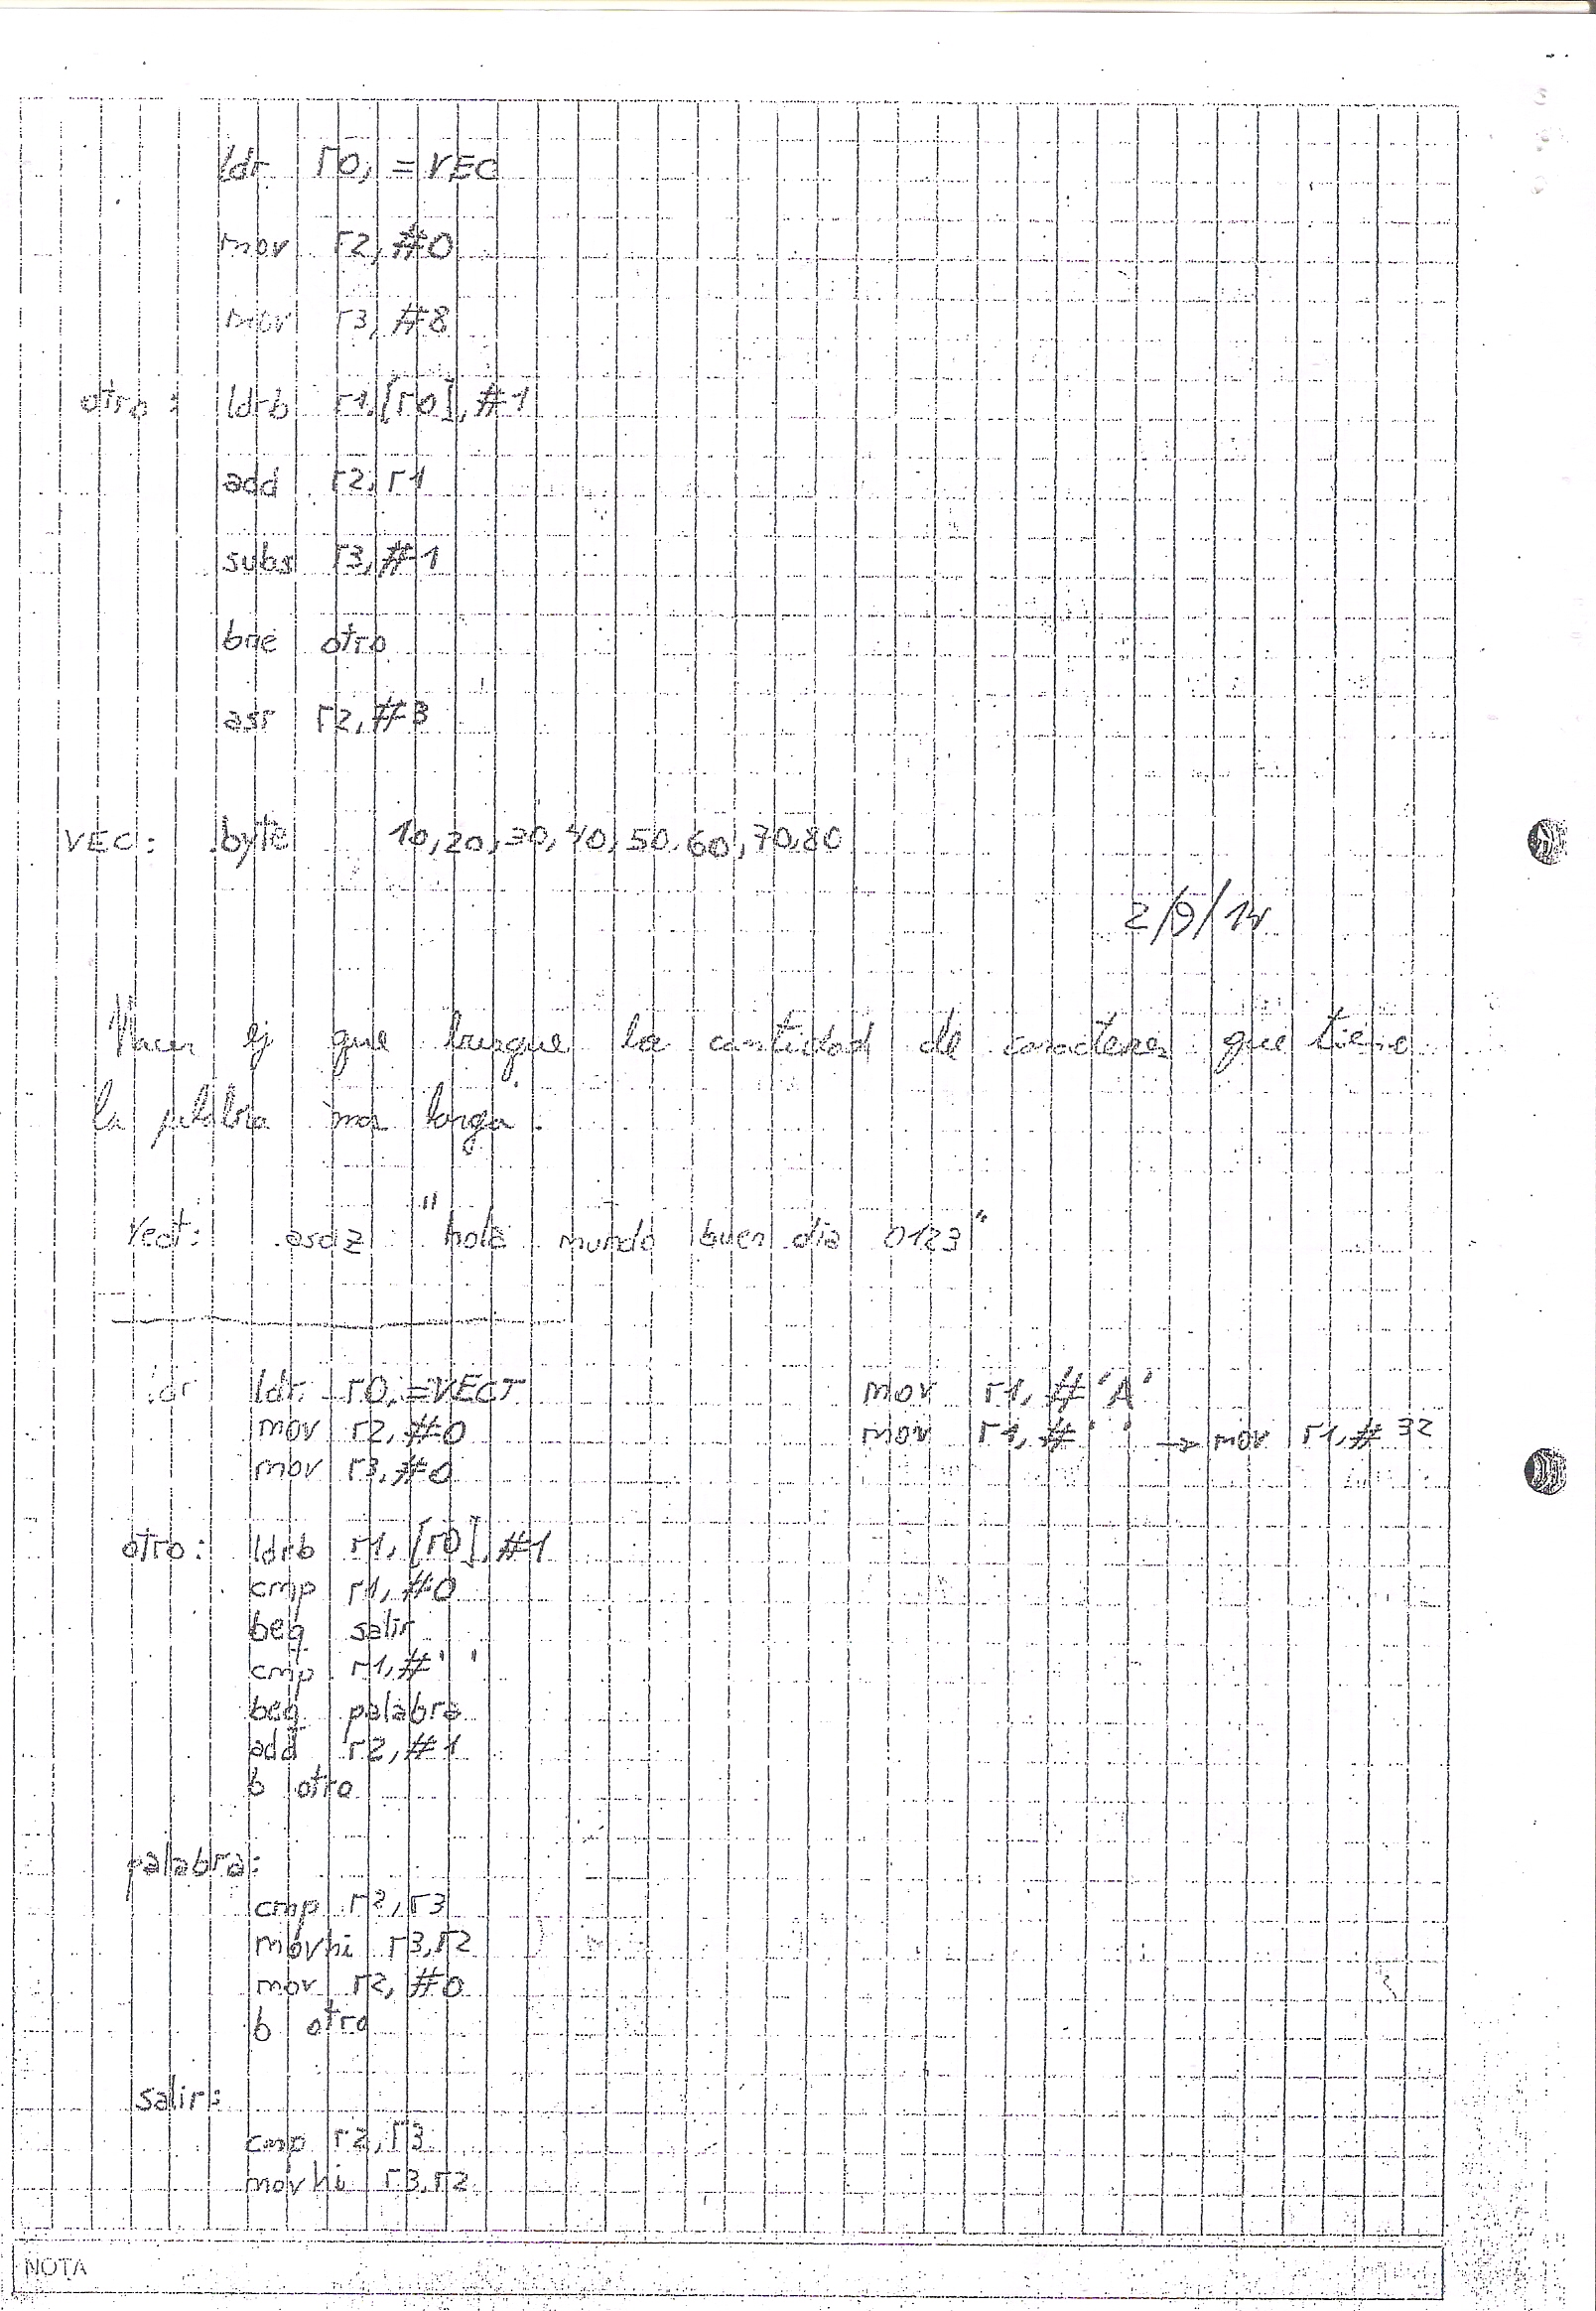 ldr r0, =VEC
mov r2, #0
mov r3, #8
otro: ldrb r1, [r0], #1
add r2, r1
subs r3, #1
bne otro
asr r2, #3
VEC: .byte 10, 20, 30, 40, 50, 60, 70, 80
2/9/14
Hacer ej que busque la cantidad de caracteres que tiene
la palabra mas larga.
Vect: .asciz "hola mundo buen dia 0123"
ldr r0, =VECT mov r1, #'A'
mov r2, #0 mov r1, #' ' → mov r1, #32
mov r3, #0
otro: ldrb r1, [r0], #1
cmp r1, #0
beq salir
cmp r1, #' '
beq palabra
add r2, #1
b otro
palabra:
cmp r2, r3
movhi r3, r2
mov r2, #0
b otro
salir:
cmp r2, r3
movhi r3, r2
NOTA